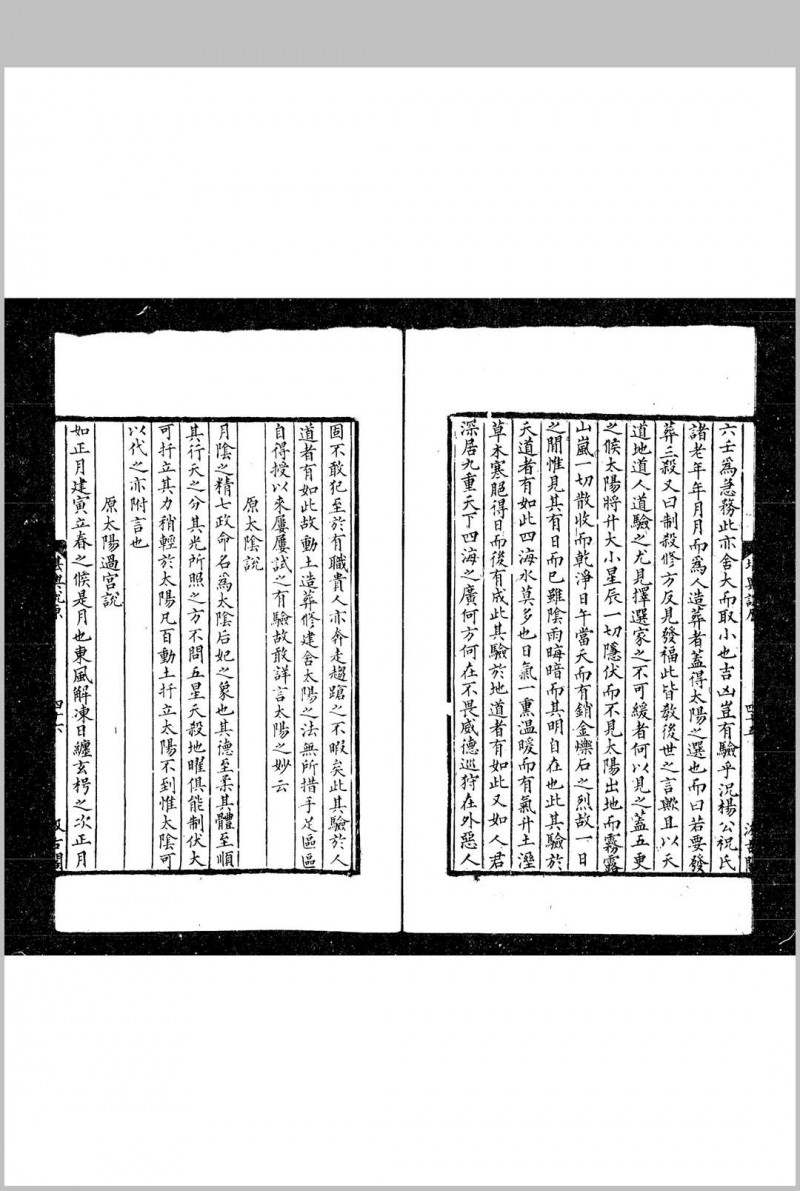 六壬為急務此亦舍大而取小也吉凶豈有驗乎況楊公祝氏
諸老年年月月而為人造葬者蓋得太陽之選也而曰若要發
葬三殺又曰制殺修方反見發福此皆教後世之言歟且以天
道地道人道驗之尤見擇選家之不可緩者何以見之蓋五更
之候太陽將升大小星辰一切隱伏而不見太陽出地而霧露
山嵐一切散收而乾淨日午當天而有銷金爍石之烈故一日
之間惟見其有日而已雖陰雨晦暗而其明自在也此其驗於
天道者有如此四海水莫多也日氣一熏溫暖而有氣升土溼
草木寒脆得日而後有成此其驗於地道者有如此又如人君
深居九重天下四海之廣何方何在不畏威德巡狩在外惡人
四十五
固不敢犯至於有職貴人亦奔走趨蹌之不暇矣此其驗於人
道者有如此故動土造葬修建舍太陽之法無所措手足區區
自得授以來屢屢試之有驗故敢詳言太陽之妙云
原太陰說
月陰之精七政命名為太陰后妃之象也其德至柔其體至順
其行天之分其光所照之方不問五星天殺地曜俱能制伏大
可扦立其力稍輕於太陽凡百動土扦立太陽不到惟太陰可
以代之亦附言也
原太陽過宮說
如正月建寅立春之候是月也東風解凍日纏玄枵之次正月
堪輿說原
四十六
汲古閣